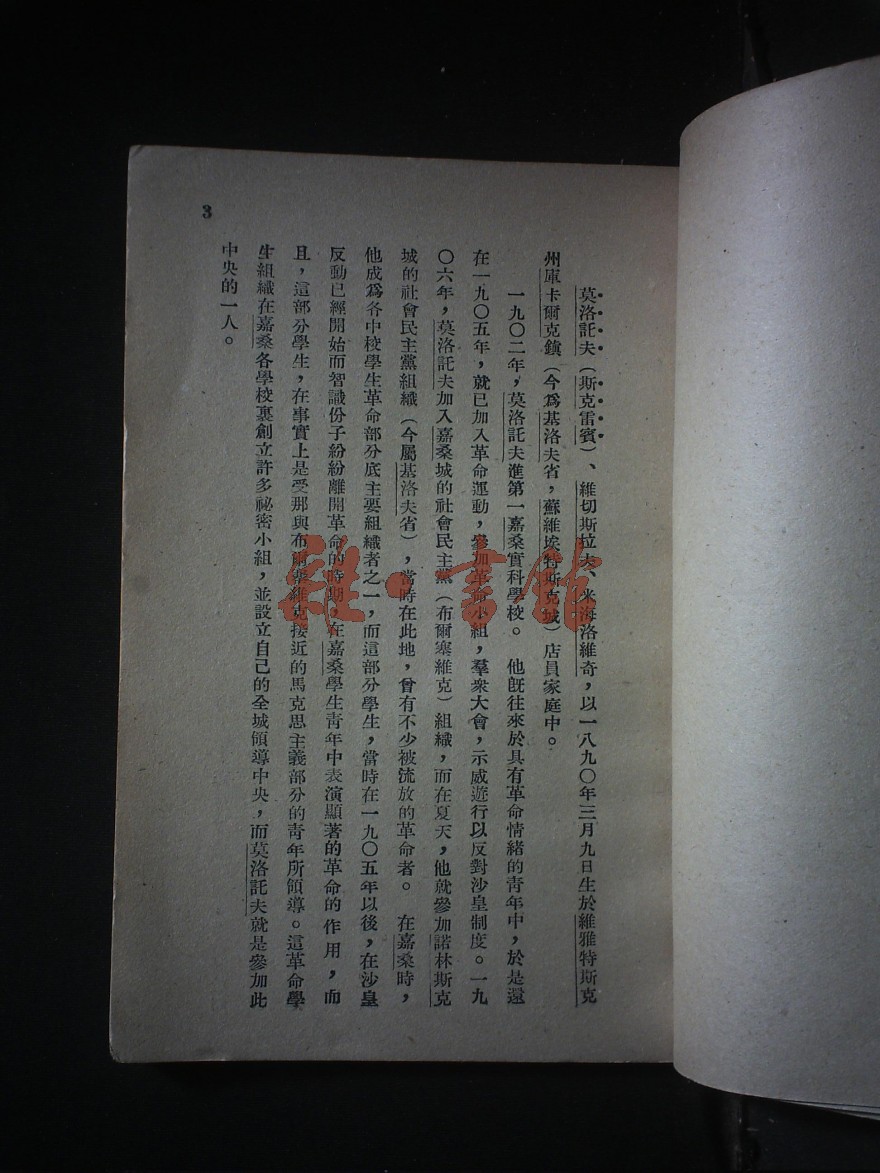 莫洛託夫（斯克雷賓）、維切斯拉夫、米海洛維奇，以一八九〇年三月九日生於維雅特斯克
州庫卡爾克鎮（今爲基洛夫省，蘇維埃特斯克城）店員家庭中。
一九〇二年，莫洛託夫進第一嘉桑實科學校。他既往來於具有革命情緒的青年中，於是還
在一九〇五年，就已加入革命運動，參加革命小組，羣衆大會，示威遊行以反對沙皇制度。一九
〇六年，莫洛託夫加入嘉桑城的社會民主黨（布爾塞維克）組織，而在夏天，他就參加諾林斯克
城的社會民主黨組織（今屬基洛夫省），當時在此地，曾有不少被流放的革命者。在嘉桑時，
他成爲各中校學生革命部分底主要組織者之一，而這部分學生，當時在一九〇五年以後，在沙皇
反動已經開始而智識份子紛紛離開革命的時期，在嘉桑學生靑年中表演顯著的革命的作用，而
且，這部分學生，在事實上是受那與布爾塞維克接近的馬克思主義部分的靑年所領導。這革命學
生組織在嘉桑各學校裏創立許多祕密小組，並設立自己的全城領導中央，而莫洛託夫就是參加此
中央的一人。
3